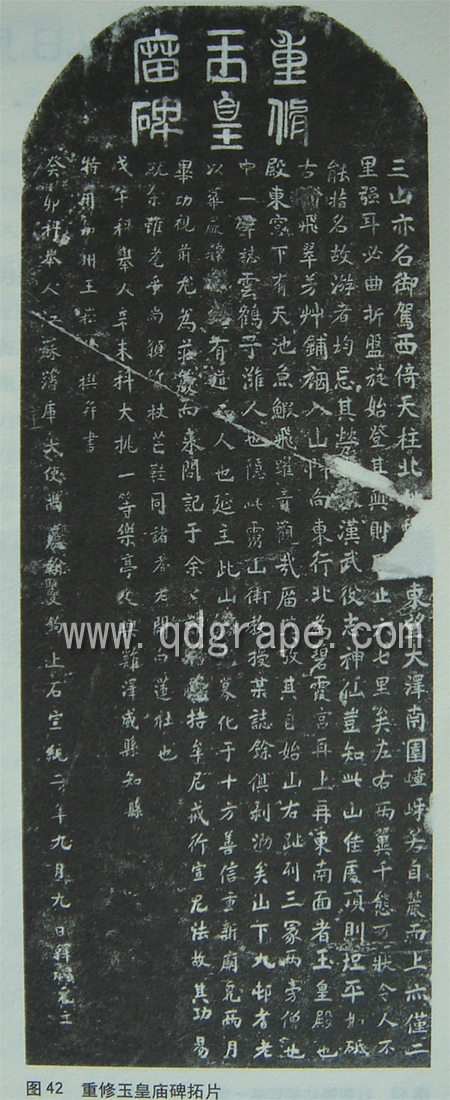 重修
玉皇
庿碑
三山亦名御駕西倚天柱北東望大澤南圍嵖岈若自麓而上亦僅二
里强耳必曲折盤旋始登其巔則止六七里矣左右兩翼千態万狀令人不
能指名故游者均忘其漢武役志神仙豈知此山佳處頂則坦平如砥
古飛翠芳艸鋪裀入山門向東行北為碧霞宫再上再東南面者玉皇殿也
殿東窓下有天池魚鰕飛躍音觀其自始山右趾列三冢兩旁僧也
中一碑誌雲鶴子濰人也隱此雩山衛教授某誌餘俱剥泐矣山下九邨耆老
以華有道之人也延主此山募化于十方善信重新廟皃兩月
畢功視前尤為莊嚴而來問記于余持牟尼戒行宣尼法故其功易
就余雖老尚願竹杖芒鞋同諸耆老開白蓮社也
戊午科舉人辛未科大挑一等樂亭雞澤成縣知縣
特用知州王菘撰并書
癸卯科舉人江蘇藩庫大使上石宣統二年九月九日釋立
www.qdgrape.com
图42 重修玉皇庙碑拓片